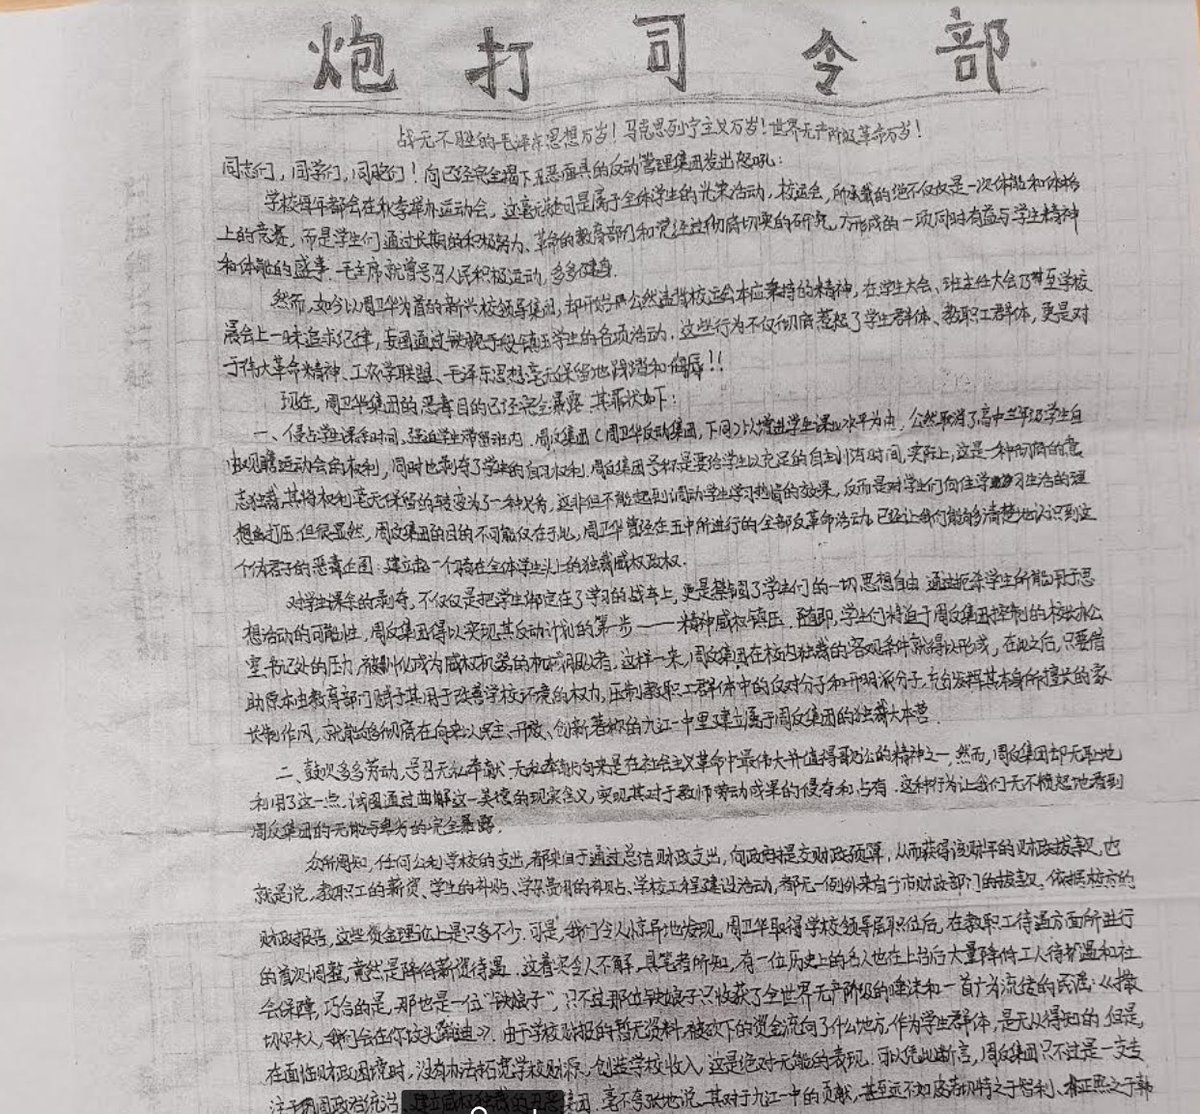 炮打司令部
战无不胜的毛泽东思想万岁！马克思列宁主义万岁！世界无产阶级革命万岁！
同志们，同学们，同胞们！向已经完全揭下丑恶面具的反动管理集团发出怒吼：
学校每年都会在秋季举办运动会，这毫无疑问是属于全体学生的光荣活动，校运会，所承载的绝不仅仅是一次体能和体格
上的竞赛，而是学生们通过长期的积极努力、革命的教育部门和党经过彻底切实的研究，方形成的一项同时有益与学生精神
和体能的盛事。毛主席就曾号召人民积极运动，多多健身.
然而，如今以周卫华为首的新兴校领导集团，却开始公然违背校运会本应秉持的精神，在学生大会、班主任大会乃甚至学校
晨会上一味追求纪律，妄图通过铁腕手段镇压学生的各项活动，这些行为不仅彻底惹怒了学生群体、教职工群体，更是对
于伟大革命精神、工农学联盟、毛泽东思想毫无保留地践踏和侮辱！！
现在，周卫华集团的恶毒目的已经完全暴露，其罪状如下：
一、侵占学生课余时间，强迫学生滞留班内。周反集团（周卫华反动集团，下同）以增进学生课业水平为由，公然取消了高中三年级学生自
由观瞻运动会的权利，同时也剥夺了学生的自习权利。周反集团号称是要给学生以充足的自主时间，实际上，这是一种彻底的意
志独裁，其将权利毫无保留的转变为了一种义务，这非但不能起到调动学生学习热情的效果，反而是对学生们向往学习生活的理
想的打压。但很显然，周反集团的目的不可能仅在于此，周卫华曾经在五中所进行的全部反革命活动，已经让我们能够清楚地认识到这
个伪君子的恶毒企图：建立起一个骑在全体学生头上的独裁威权政权.
对学生课余的剥夺，不仅仅是把学生绑定在了学习的战车上，更是禁锢了学生们的一切思想自由。通过扼杀学生所能用于思
想活动的可能性，周反集团得以实现其反动计划的第一步——精神威权镇压。随即，学生们将迫于周反集团控制的校办公
室、书记处的压力，被驯化成为威权机器的机械服从者，这样一来，周反集团在校内独裁的客观条件就得以形成，在此之后，只要借
助原本由教育部门赋予其用于改善学校环境的权力，压制教职工群体中的反对分子和开明派分子，充分发挥其本身所擅长的家
长制作风，就能够彻底在向来以民主、开放、创新著称的九江一中里建立属于周反集团的独裁大本营.
二、鼓吹多多劳动，号召无私奉献。无私奉献向来是在社会主义革命中最伟大并值得歌讼的精神之一，然而，周反集团却无耻地
利用了这一点，试图通过曲解这一美德的现实含义，实现其对于教师劳动成果的侵夺和占有。这种行为让我们无不愤怒地看到
周反集团的无能与卑劣的完全暴露.
众所周知，任何公利学校的支出，都来自于通过总结财政支出，向政府提交财政预算，从而获得该财年的财政拨款，也
就是说，教职工的薪资、学生的补贴、学杂费用的补贴、学校工程建设活动，都无一例外来自于市财政部门的拨款。依据校方的
财政报告，这些资金理论上是只多不少。可是，我们令人惊异地发现，周卫华取得学校领导层职位后，在教职工待遇方面所进行
的首次调整，竟然是降低薪资待遇。这着实令人不解，具笔者所知，有一位历史上的名人也在上台后大量降低工人待遇和社
会保障，巧合的是，那也是一位“铁娘子”，只不过那位铁娘子只收获了全世界无产阶级的唾沫和一首广为流传的民谣：《撒
切尔夫人，我们会在你坟头蹦迪》。由于学校财报的暂无资料，被砍下的资金流向了什么地方，作为学生群体，是无从得知的。但是，
在面临财政困境时，没有办法拓宽学校财源，创造学校收入，这是绝对无能的表现。可以凭此断言，周反集团只不过是一支专
注于巩固政治统治、建立威权独裁的丑恶集团。毫不夸张地说，其对于九江一中的贡献，甚至远不如皮诺切特之于智利、朴正熙之于韩